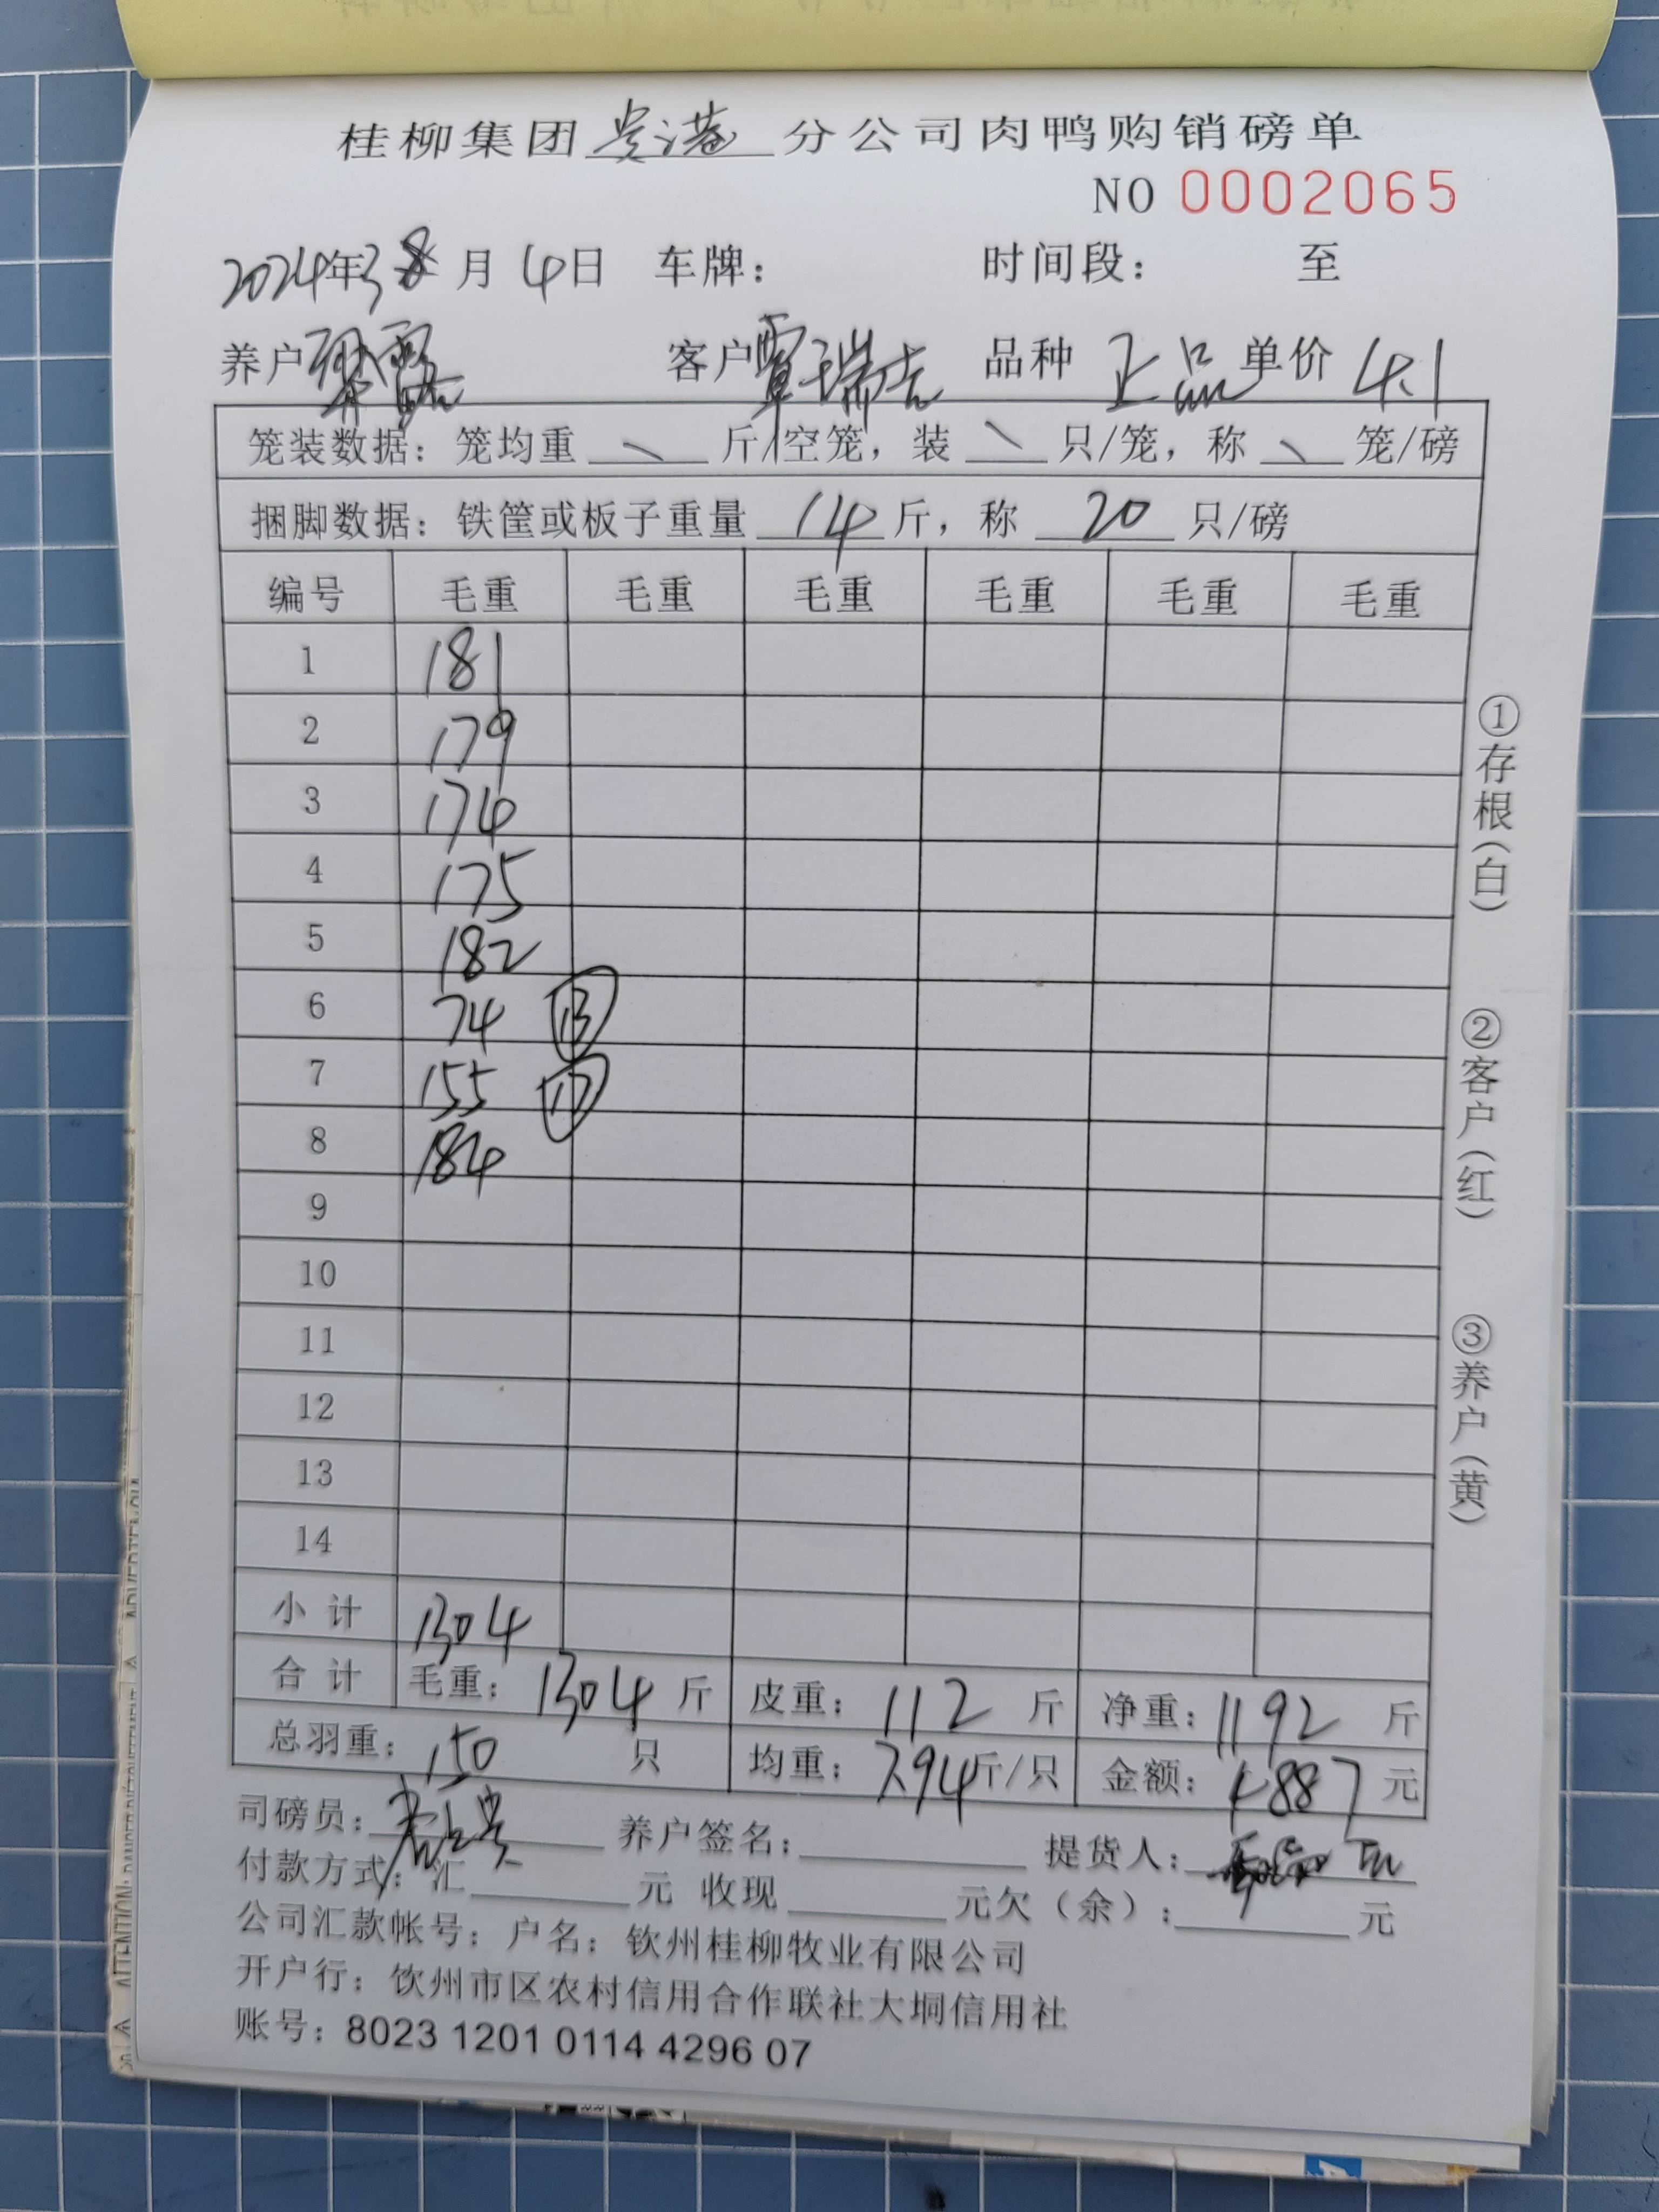 桂柳集团贵港分公司肉鸭购销磅单
NO 0002065
2024年3月4日 车牌： 时间段： 至
养户梁露 客户覃瑞吉 品种 正品 单价 4.1
笼装数据：笼均重 \ 斤/空笼，装 \ 只/笼，称 \ 笼/磅
捆脚数据：铁筐或板子重量 14 斤，称 20 只/磅
编号 毛重 毛重 毛重 毛重 毛重 毛重
1 181
2 179
3 174
4 175
5 182
6 74 ⑬
7 155 ⑰
8 184
9
10
11
12
13
14
小计 1304
合计 毛重：1304 斤 皮重：112 斤 净重：1192 斤
总羽重：150 只 均重：7.94斤/只 金额：4887 元
司磅员： 养户签名： 提货人：
付款方式：汇 元 收现 元欠（余）： 元
公司汇款帐号：户名：钦州桂柳牧业有限公司
开户行：钦州市区农村信用合作联社大垌信用社
账号：8023 1201 0114 4296 07
①存根（白）
②客户（红）
③养户（黄）